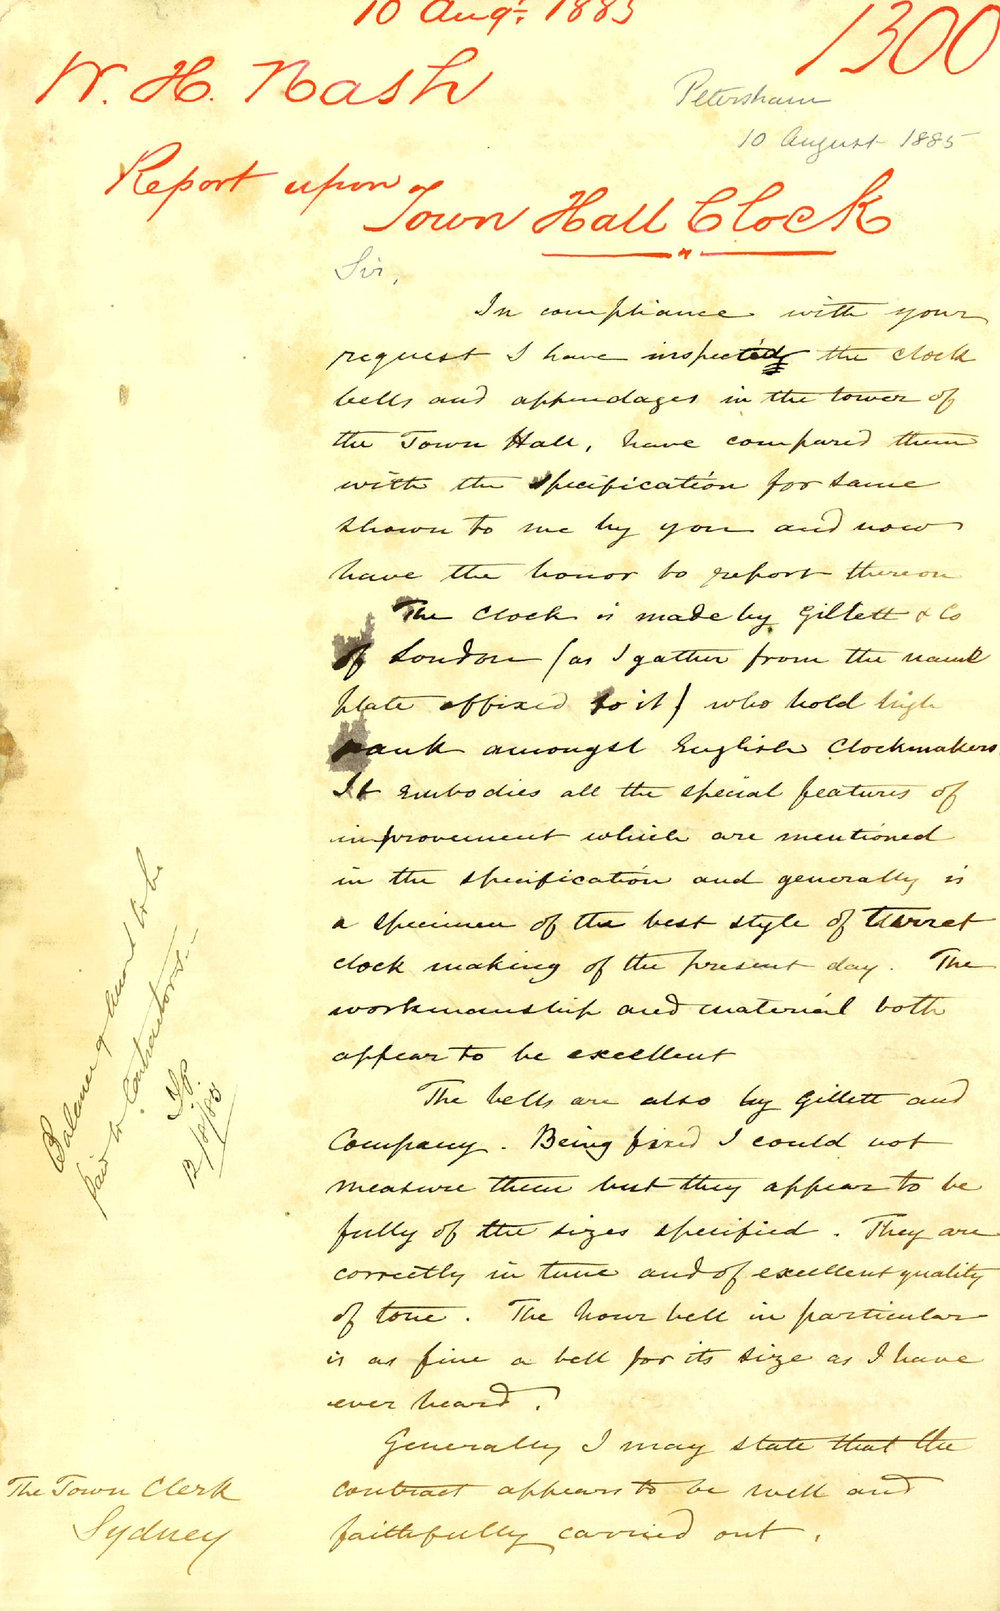 10 Augt. 1885
1300
W. H. Nash
Petersham
10 August 1885
Report upon
Town Hall Clock
Sir,
In compliance with your
request I have inspected the clock
bells and appendages in the tower of
the Town Hall, have compared them
with the specification for same
shown to me by you and now
have the honor to report thereon
The Clock is made by Gillett & Co
of London (as I gather from the name
plate affixed to it) who hold high
rank amongst English Clockmakers
It embodies all the special features of
improvement which are mentioned
in the specification and generally is
a specimen of the best style of turret
clock making of the present day. The
workmanship and material both
appear to be excellent
The bells are also by Gillett and
Company. Being fixed I could not
measure them but they appear to be
fully of the sizes specified. They are
correctly in tune and of excellent quality
of tone. The hour bell in particular
is as fine a bell for its size as I have
ever heard.
Generally I may state that the
contract appears to be well and
faithfully carried out.
The Town Clerk
Sydney
Balance of amount to be
paid to Contractors.
12/8/85